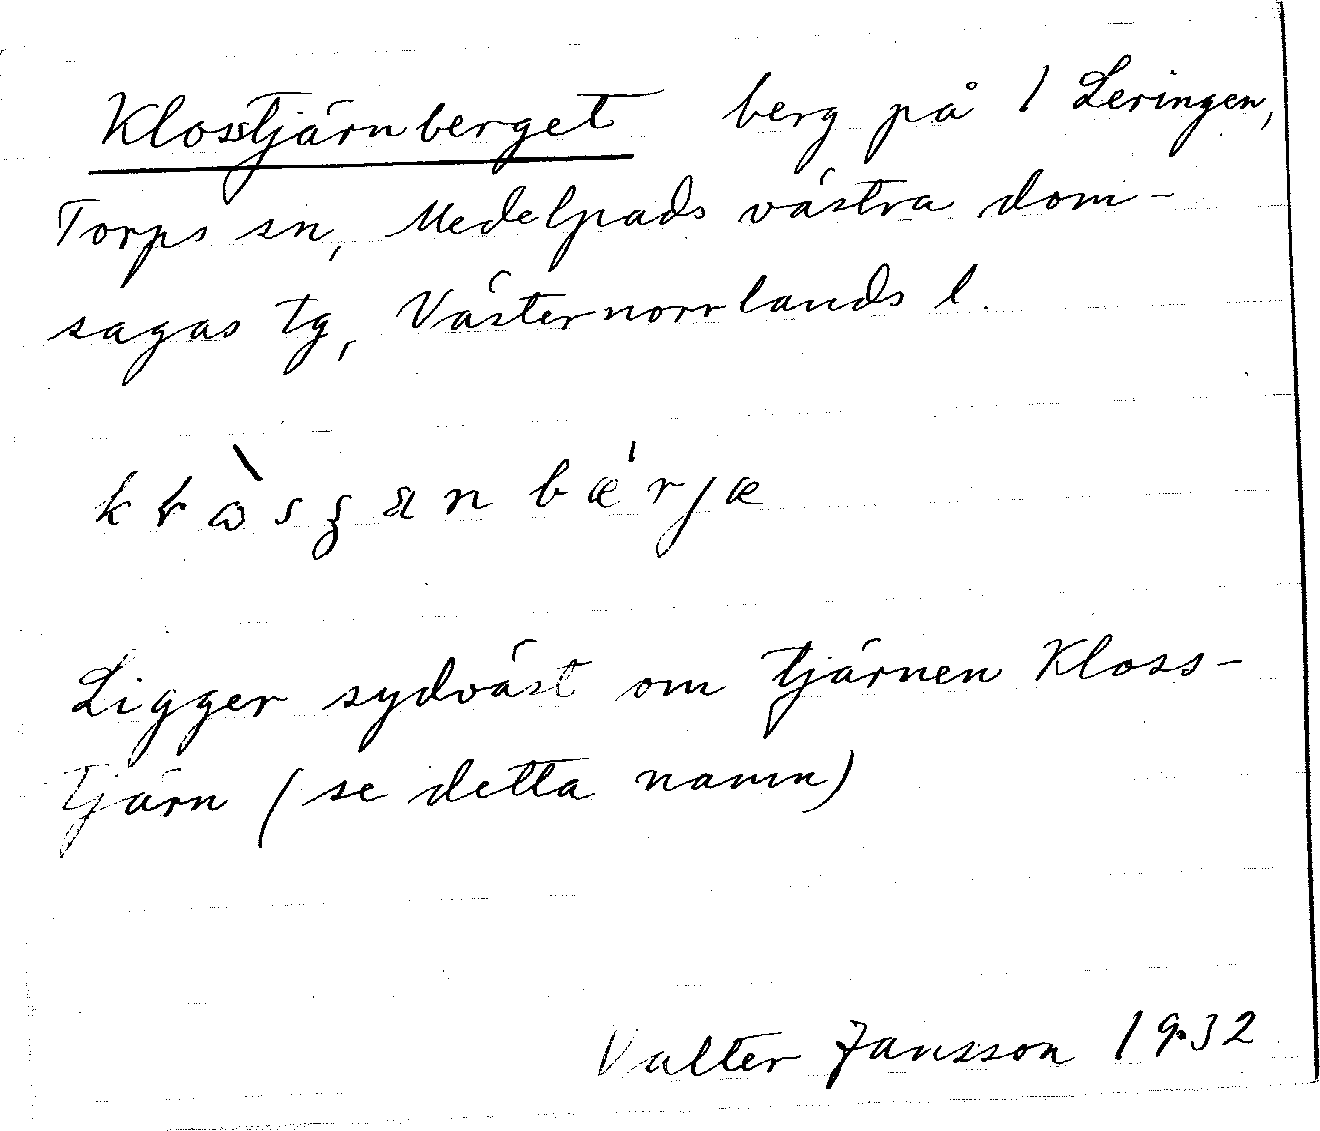 Klosstjärnberget berg på 1 Leringen,
Torps sn, Medelpads västra dom-
sagas tg, Västernorrlands l.
Ligger sydväst om tjärnen Kloss-
tjärn (se detta namn)
Valter Jansson 1932